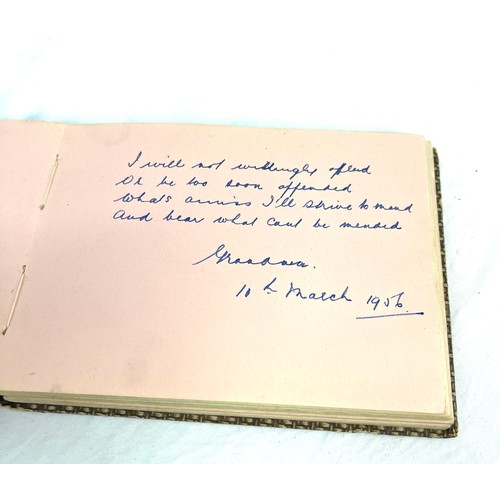 I will not willingly offend
Or be too soon offended
What's amiss I'll strive to mend
And bear what cant be mended
Grandma.
10th March 1956